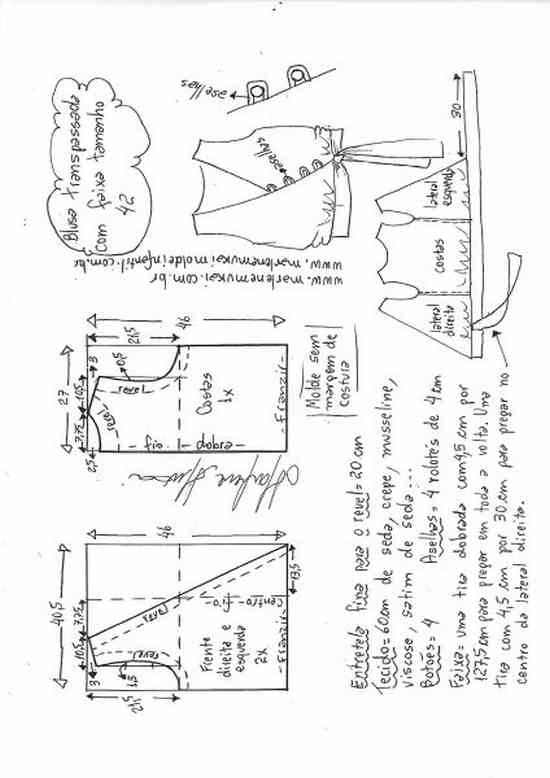 Blusa transpassada
com faixa tamanho
42
www.marlenemukai.com.br
www.marlenemukaimoldeinfantil.com.br
aselhas
aselhas
30
lateral
direita
costas
lateral
esquerda
40,5
10,5
7,75
3
21,5
1,5
46
13,5
revel
revel
Frente
direita e
esquerda
2x
Centro
fio
-Franzir-
27
7,75
10,5
3
2,5
0,5
21,5
46
revel
revel
Costas
1x
dobra
fio
-Franzir-
Molde sem
margem de
costura
Entretela fina para o revel= 20 cm
Tecido= 60cm de seda, crepe, musseline,
viscose, satim de seda...
Botões= 4 Aselhas= 4 rolotês de 4 cm
Faixa= uma tira dobrada com 4,5 cm por
127,5 cm para pregar em toda a volta. Uma
tira com 4,5 cm por 30 cm para pregar no
centro da lateral direita.